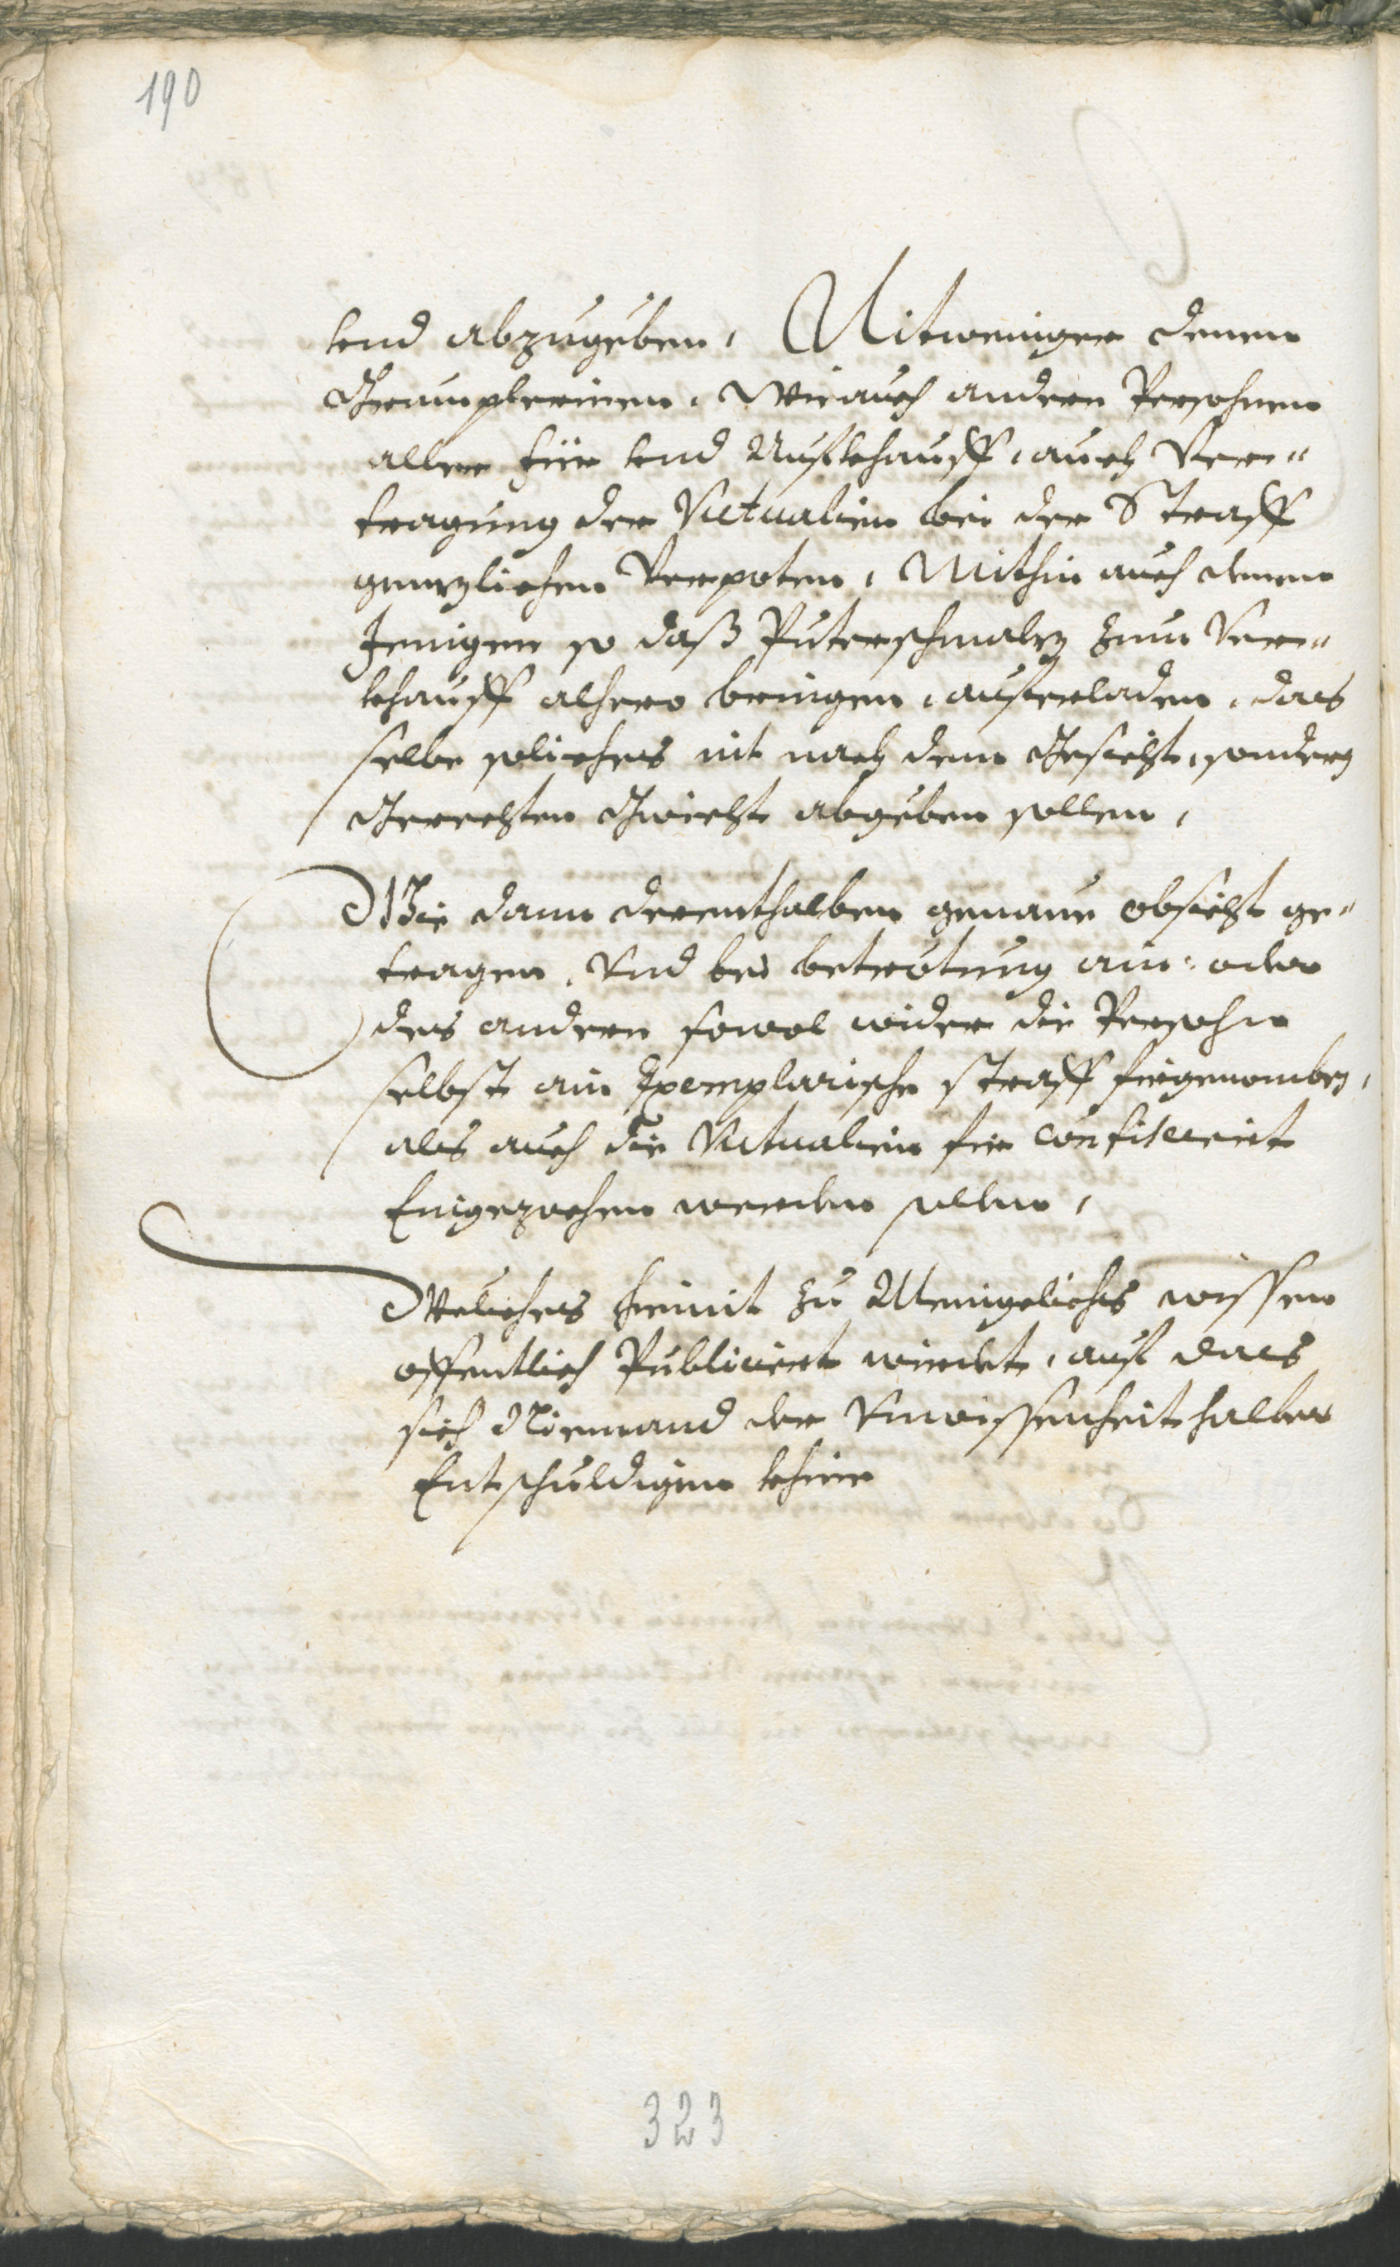 190
lend abzugeben, Nitweniger denen
Grämplerinen, Wie auch andern Persohnen
aller für lend Aufkhauff, auch Ver¬
tragung der Victualien bei der Straff
gennzlichen Verpoten, Mithin auch denen
Jenigen so daß Puterschmalz zum Ver¬
khauff alhero bringen, auferladen, das
selbe soliches nit nach dem Gesicht, sondern
Gerechten Gwicht abgeben sollen,
Wie dann derenthalben genaue obsicht ge¬
tragen, Vnd bei betretung ain: oder
des andern sowol wider die Persohn
selbst ain Exemplarische straff firgenomben,
als auch die Victualien fir confisciert
Eingezochen werden sollen,
Weliches hiemit zu Meniglichs wissen
offentlich Publiciert wirdet, auf das
sich Niemand der Vnwissenheit halber
Entschuldigen khine
323